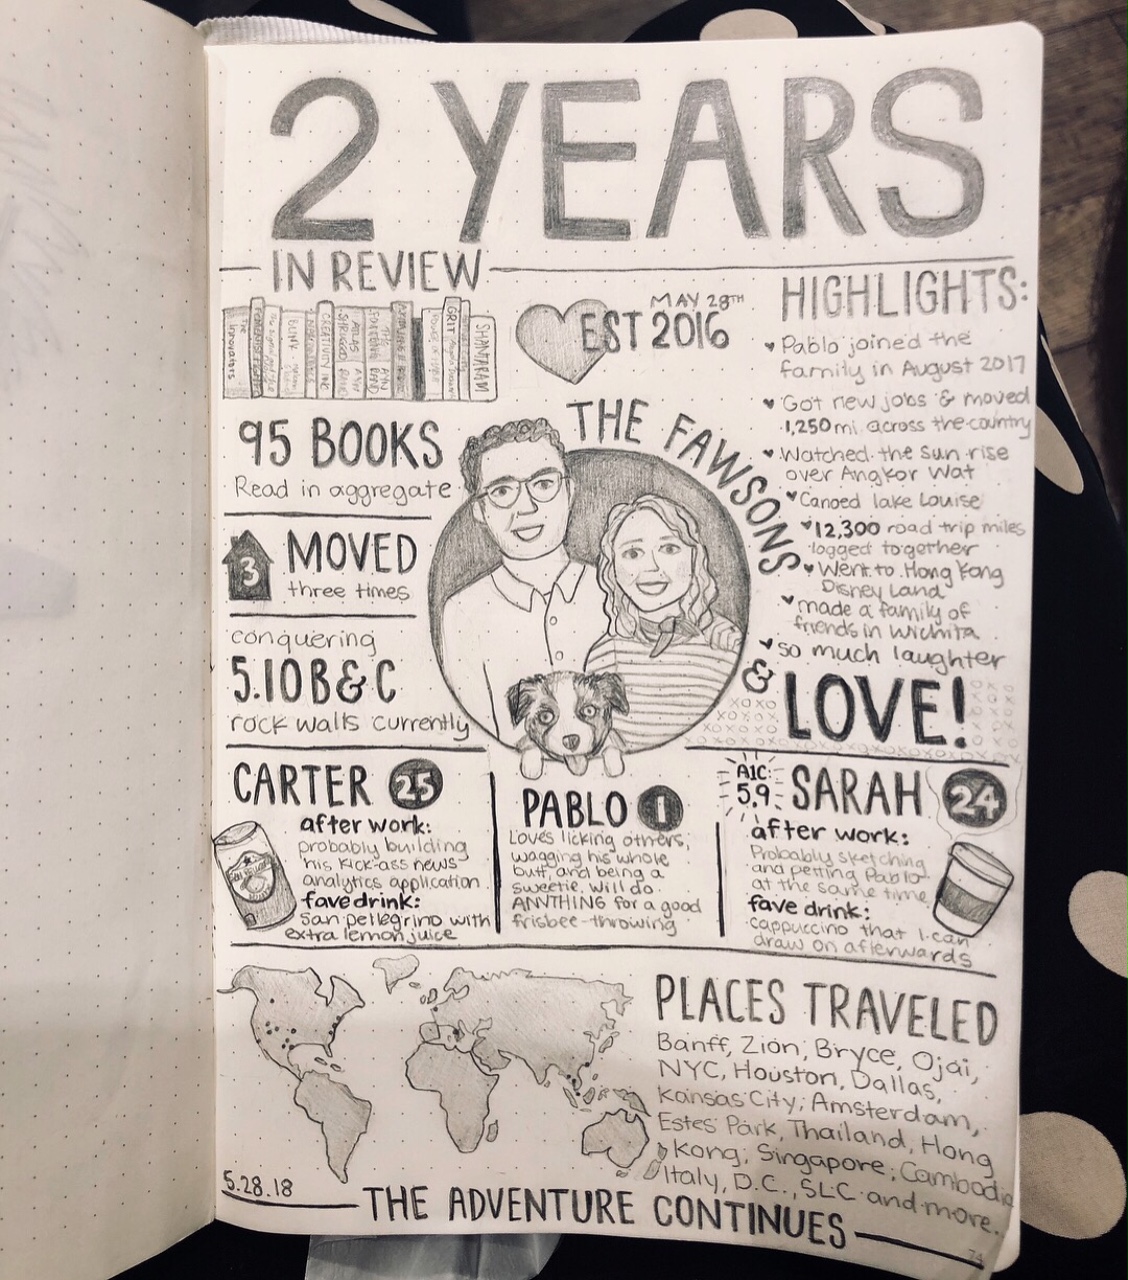 2 YEARS
IN REVIEW
The Innovators
CREATIVITY INC
ATLAS SHRUGGED
GRIT
SHANTARAM
MAY 28TH
EST 2016
95 BOOKS
Read in aggregate
3
MOVED
three times
conquering
5.10 B & C
rock walls currently
THE FAWSONS
HIGHLIGHTS:
Pablo joined the
family in August 2017
Got new jobs & moved
1,250 mi across the country
Watched the sun rise
over Angkor Wat
Canoed lake Louise
12,300 road trip miles
logged together
Went to Hong Kong
Disney Land
made a family of
friends in Wichita
so much laughter
& LOVE!
XOXO
XOXOX
XOXOXO
CARTER 25
after work:
probably building
his kick-ass news
analytics application
fave drink:
san pellegrino with
extra lemon juice
PABLO 1
Loves licking others,
wagging his whole
butt, and being a
sweetie. Will do
ANYTHING for a good
frisbee-throwing
A1C:
5.9
SARAH 24
after work:
Probably sketching
and petting Pablo
at the same time
fave drink:
cappuccino that I can
draw on afterwards
PLACES TRAVELED
Banff, Zion, Bryce, Ojai,
NYC, Houston, Dallas,
Kansas City, Amsterdam,
Estes Park, Thailand, Hong
Kong, Singapore, Cambodia
Italy, D.C., SLC and more.
5.28.18
THE ADVENTURE CONTINUES
74